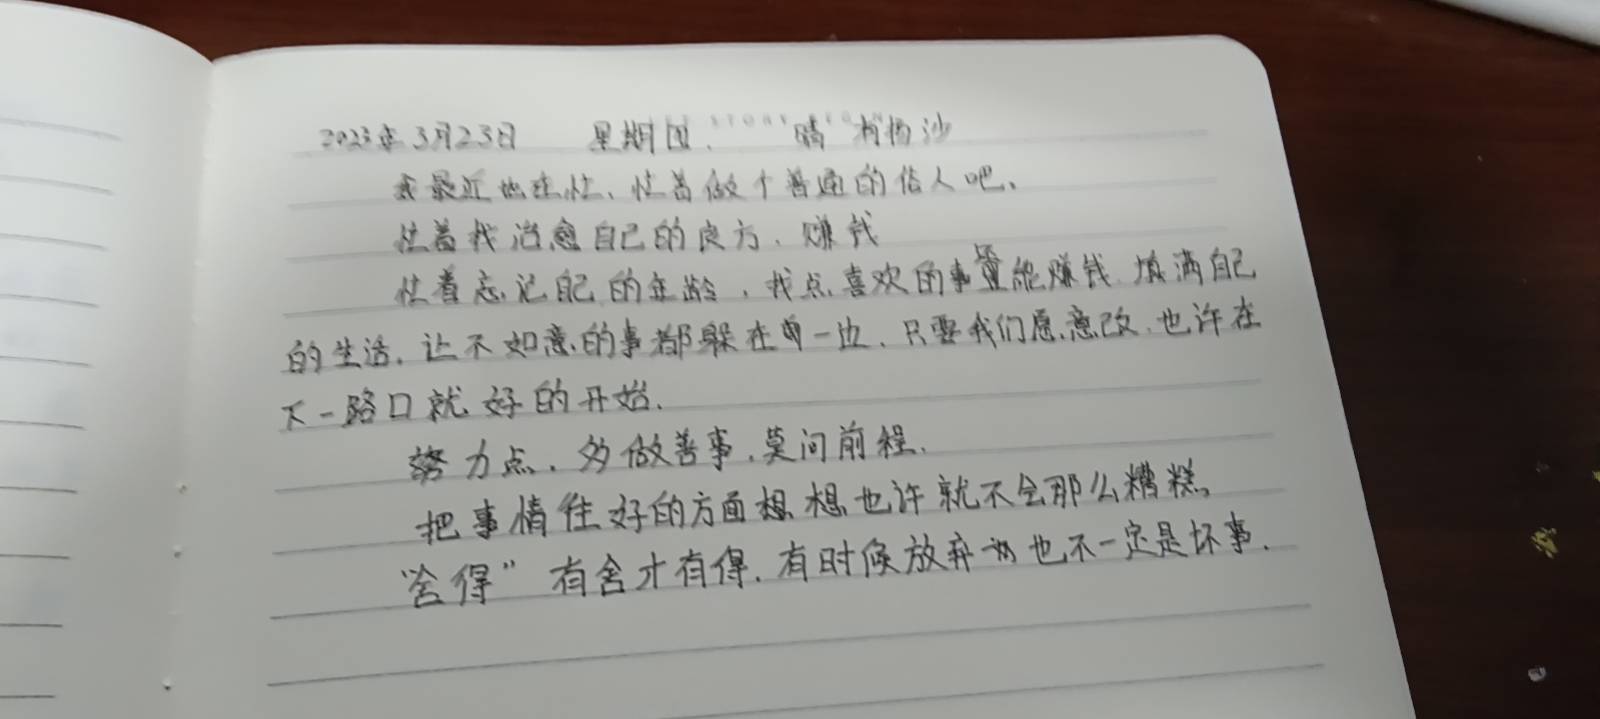 2023年3月23日 星期四. 晴 有扬沙
我最近也在忙、忙着做个普通的俗人吧、
忙着找治愈自己的良方、赚钱
忙着忘记自己的年龄，找点喜欢的事还能赚钱.填满自己
的生活，让不如意的事都躲在一边、只要我们愿意改.也许在
下一路口就好的开始.
努力点，多做善事，莫问前程.
把事情往好的方面想想也许就不会那么糟糕。
“舍得”有舍才有得，有时候放弃也不一定是坏事.